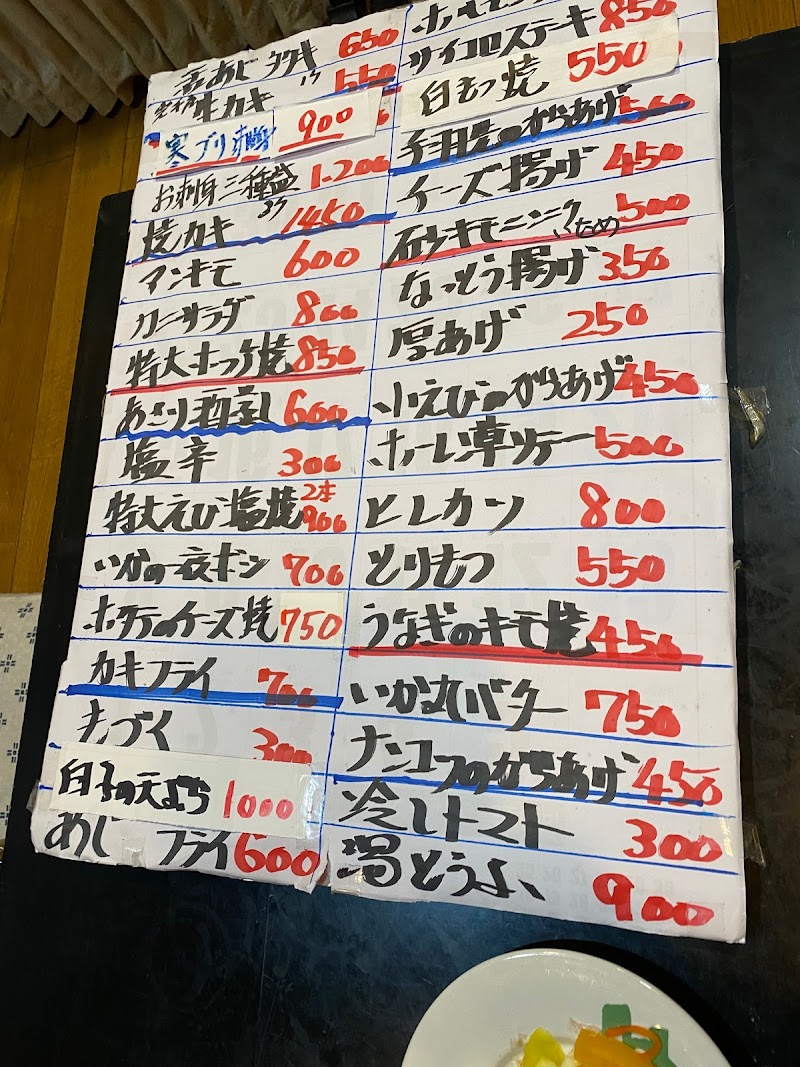 あじ タタキ 650
生カキ 1ケ 550
寒ブリ刺身 900
お刺身三種盛 1.200
焼カキ 3ケ 1450
アンキモ 600
カニサラダ 800
特大ホッケ焼 850
あさり酒蒸し 600
塩辛 300
特大えび塩焼 2本 900
いかの一夜ボシ 700
ホタテのチーズ焼 750
カキフライ 700
もづく 300
白子の天ぷら 1000
あじ フライ 600
850
サイコロステーキ
白もつ焼 550
手羽先のからあげ 500
チーズ揚げ 450
砂ギモニンニクいため 500
なっとう揚げ 350
厚あげ 250
小えびのからあげ 450
ホーレン草ソテー 500
ヒレカツ 800
とりもつ 550
うなぎのキモ焼 450
いか丸バター 750
ナンコツのからあげ 450
冷しトマト 300
湯どうふ 900